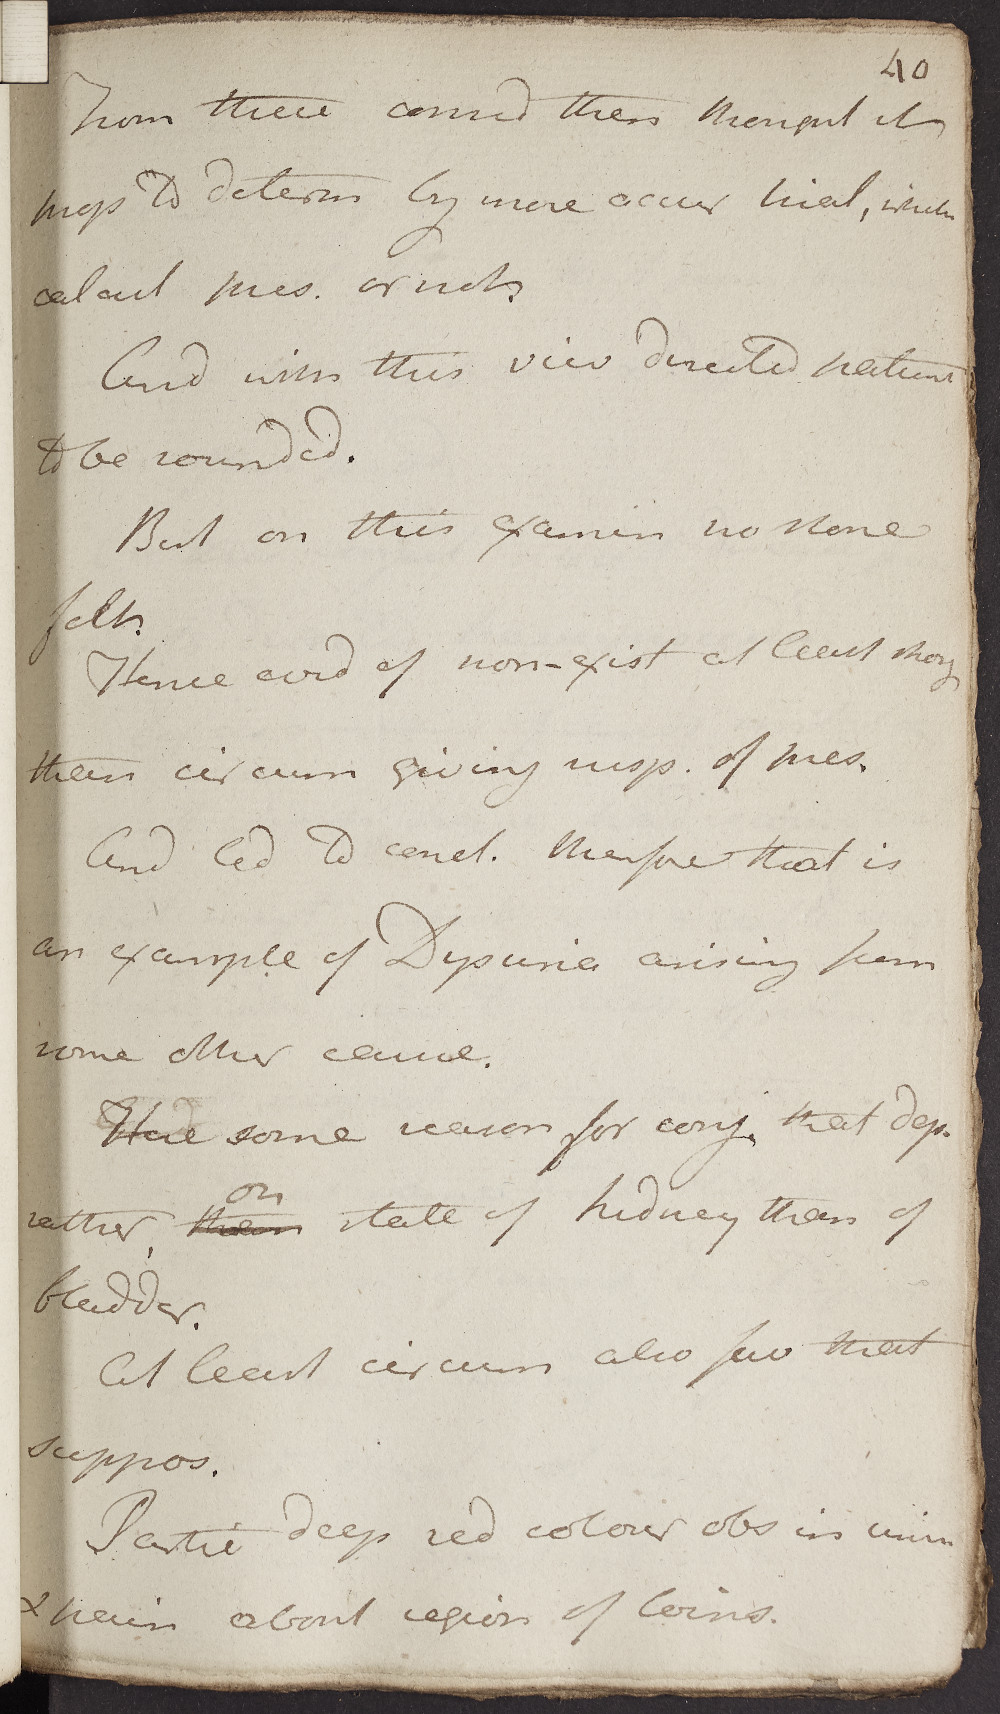 40
From these consid then thought it
prop to determ by more accur trial, wheth
calcul pres. or not.
And with this view directed patient
to be sounded.
But on this examin no stone
felt.
Hence evid of non-exist at least strong
than circum giving susp. of pres.
And led to concl. therefore that is
an example of Dysuria arising from
some other cause.
Have some reason for conj. that dep.
on
rather, than state of kidney than of
bladder.
At least circum also fav that
suppos.
Partic deep red colour obs in urin
& pain about region of loins.